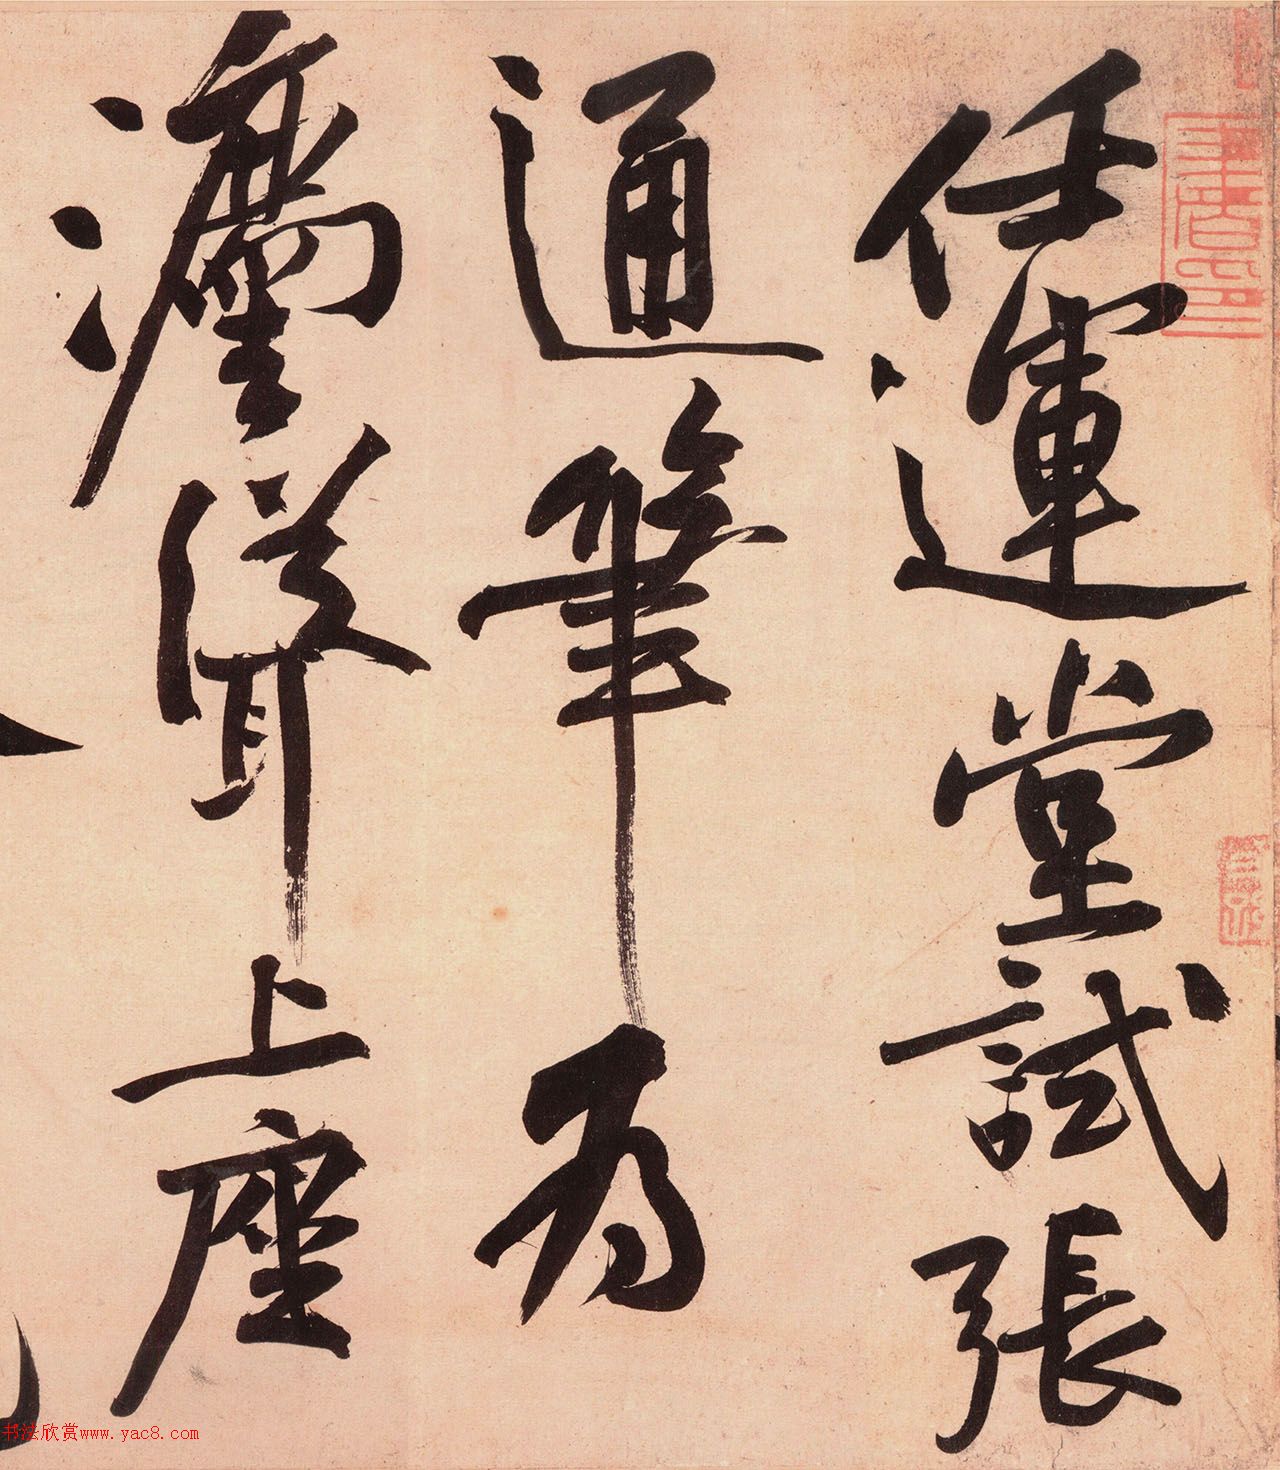 任運堂試張
通筆為
瀍聳上座
书法欣赏www.yac8.com